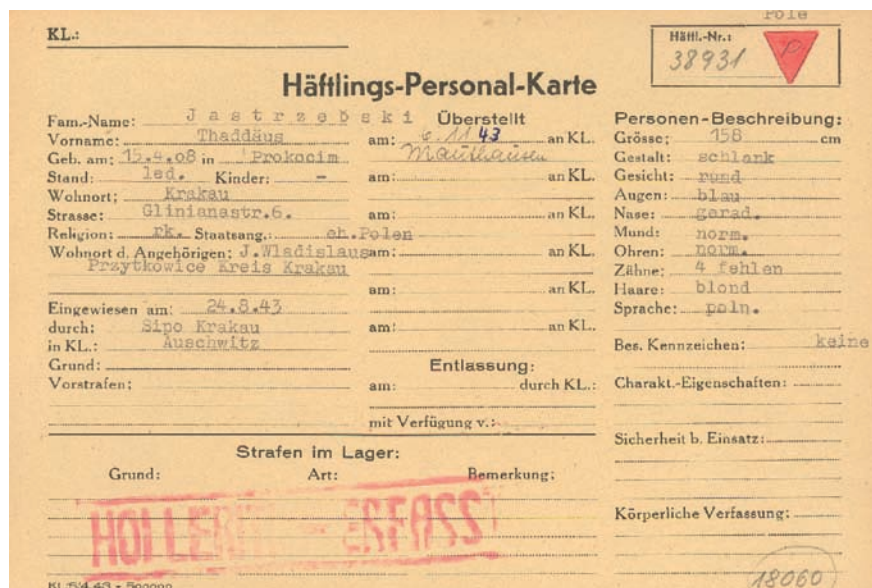 Pole
KL.:
Häftl.-Nr.:
38931
P
Häftlings-Personal-Karte
Fam.-Name: Jastrzebski
Vorname: Thaddäus
Geb. am: 15.4.08 in Prokocim
Stand: led. Kinder: -
Wohnort: Krakau
Strasse: Glinianastr.6.
Religion: rk. Staatsang.: eh.Polen
Wohnort d. Angehörigen: J.Wladislaus
Przytkowice Kreis Krakau
Eingewiesen am: 24.8.43
durch: Sipo Krakau
in KL.: Auschwitz
Grund:
Vorstrafen:
Überstellt
am: 6.11 43 an KL.
Mauthausen
am: an KL.
am: an KL.
am: an KL.
am: an KL.
am: an KL.
Entlassung:
am: durch KL.:
mit Verfügung v.:
Personen-Beschreibung:
Grösse: 158 cm
Gestalt: schlank
Gesicht: rund
Augen: blau
Nase: gerad.
Mund: norm.
Ohren: norm.
Zähne: 4 fehlen
Haare: blond
Sprache: poln.
Bes. Kennzeichen: keine
Charakt.-Eigenschaften:
Sicherheit b. Einsatz:
Körperliche Verfassung:
Strafen im Lager:
Grund: Art: Bemerkung:
HOLLERITH ERFASST
KL 5/4.43 - 500000
18060